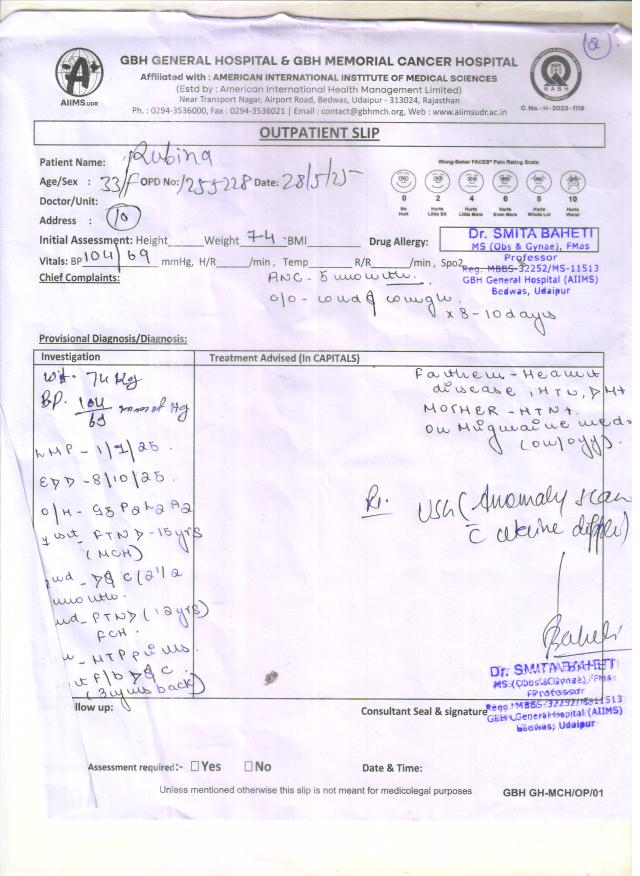 2
GBH GENERAL HOSPITAL & GBH MEMORIAL CANCER HOSPITAL
Affiliated with : AMERICAN INTERNATIONAL INSTITUTE OF MEDICAL SCIENCES
(Estd by : American International Health Management Limited)
Near Transport Nagar, Airport Road, Bedwas, Udaipur - 313024, Rajasthan
Ph. : 0294-3536000, Fax : 0294-3536021 | Email : contact@gbhmch.org, Web : www.aiimsudr.ac.in
AIIMS.UDR
NABH
C.No.-H-2022-1119
OUTPATIENT SLIP
Patient Name: Rubina
Age/Sex : 33/F OPD No: 1255228 Date: 28/5/25
Doctor/Unit:
Address : 10
Wong-Baker FACES® Pain Rating Scale
0 2 4 6 8 10
No Hurt Hurts Little Bit Hurts Little More Hurts Even More Hurts Whole Lot Hurts Worst
Initial Assessment: Height Weight 74 BMI Drug Allergy:
Vitals: BP 104/69 mmHg, H/R /min, Temp R/R /min, Spo2
Dr. SMITA BAHETI
MS (Obs & Gynae), FMas
Professor
Reg. MBBS-32252/MS-11513
GBH General Hospital (AIIMS)
Bedwas, Udaipur
Chief Complaints:
ANC - 5 month.
c/o - cold & cough
x 8-10 days
Provisional Diagnosis/Diagnosis:
Investigation Treatment Advised (In CAPITALS)
Wt. 74 Kg
BP. 104/69 mm of Hg
LMP - 1/1/25.
EDD - 8/10/25.
O/H - G5P2L2A2
FTND - 15 yrs
(MCH)
D&C (2 1/2
month.
FTND (12 yrs)
FCH.
MTP
f/b D&C.
(3 years back)
Father - Heart
disease, HTN, DM+
MOTHER - HTN+.
on Migraine med.
(on/off).
Rx. USG (Anomaly scan
c uterine doppler)
Baheti
Dr. SMITA BAHETI
MS (Obs & Gynae), FMas
Professor
Reg. MBBS-32252/MS-11513
GBH General Hospital (AIIMS)
Bedwas, Udaipur
llow up: Consultant Seal & signature
Assessment required:- Yes No Date & Time:
Unless mentioned otherwise this slip is not meant for medicolegal purposes GBH GH-MCH/OP/01